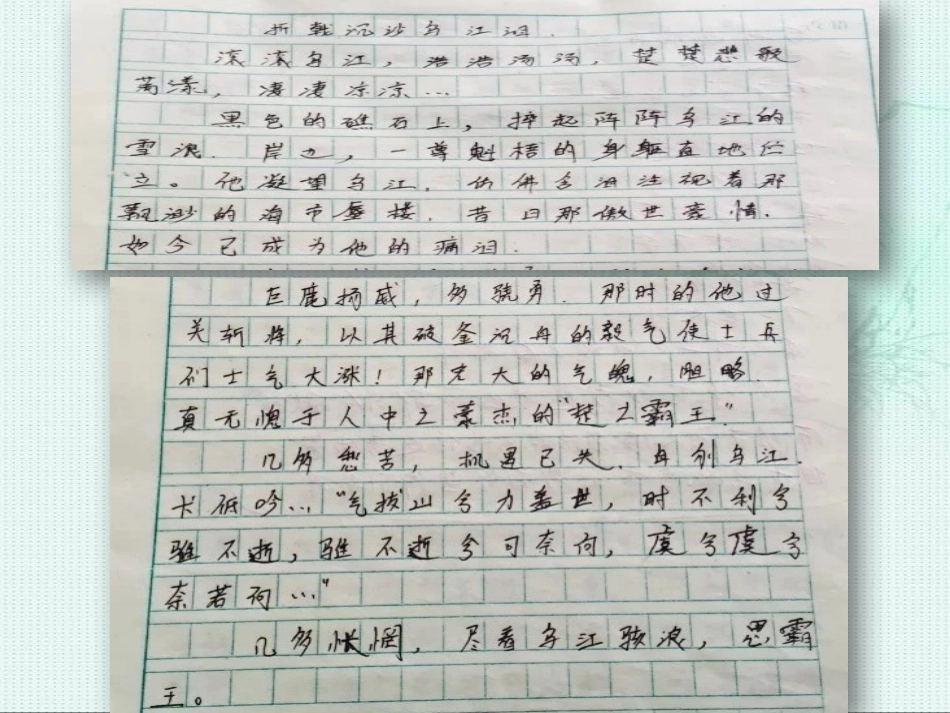 折戟沉沙乌江泪.
滚滚乌江，浩浩汤汤，楚楚悲歌
荡漾，凄凄凉凉…
黑色的礁石上，捽起阵阵乌江的
雪浪.岸边，一尊魁梧的身躯直地伫
立。他凝望乌江.仿佛含泪注视着那
飘渺的海市蜃楼.昔日那傲世豪情.
如今已成为他的痛泪.
巨鹿扬威，多骁勇.那时的他过
关斩将，以其破釜沉舟的毅气使士兵
们士气大涨！那老大的气魄，胆略.
真无愧于人中之豪杰的“楚之霸王”
几多愁苦，机遇已失.自刎乌江.
低吟…“气拔山兮力盖世，时不利兮
骓不逝，骓不逝兮可奈何，虞兮虞兮
奈若何…”
几多怅惘，尽看乌江骇浪，思霸
王。